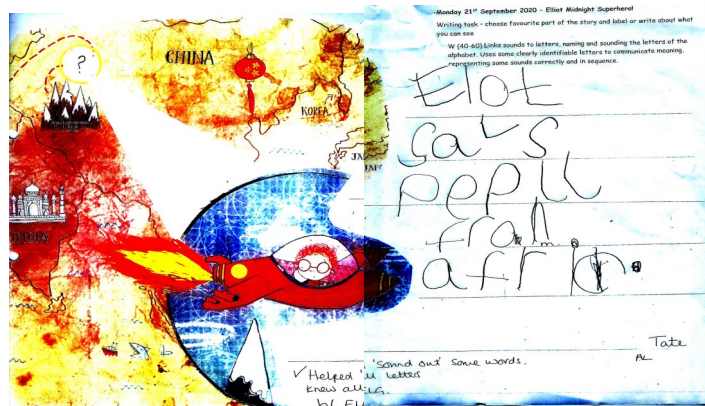 CHINA
?
KOREA
JA
INDIA
Monday 21st September 2020 - Elliot Midnight Superhero!
Writing task - choose favourite part of the story and label or write about what
you can see
W (40-60) Links sounds to letters, naming and sounding the letters of the
alphabet. Uses some clearly identifiable letters to communicate meaning,
representing some sounds correctly and in sequence.
Elot
savs
pepll
from
afr
Tate
AL
✓ Helped 'sound out' some words.
knew all letters
ELG.